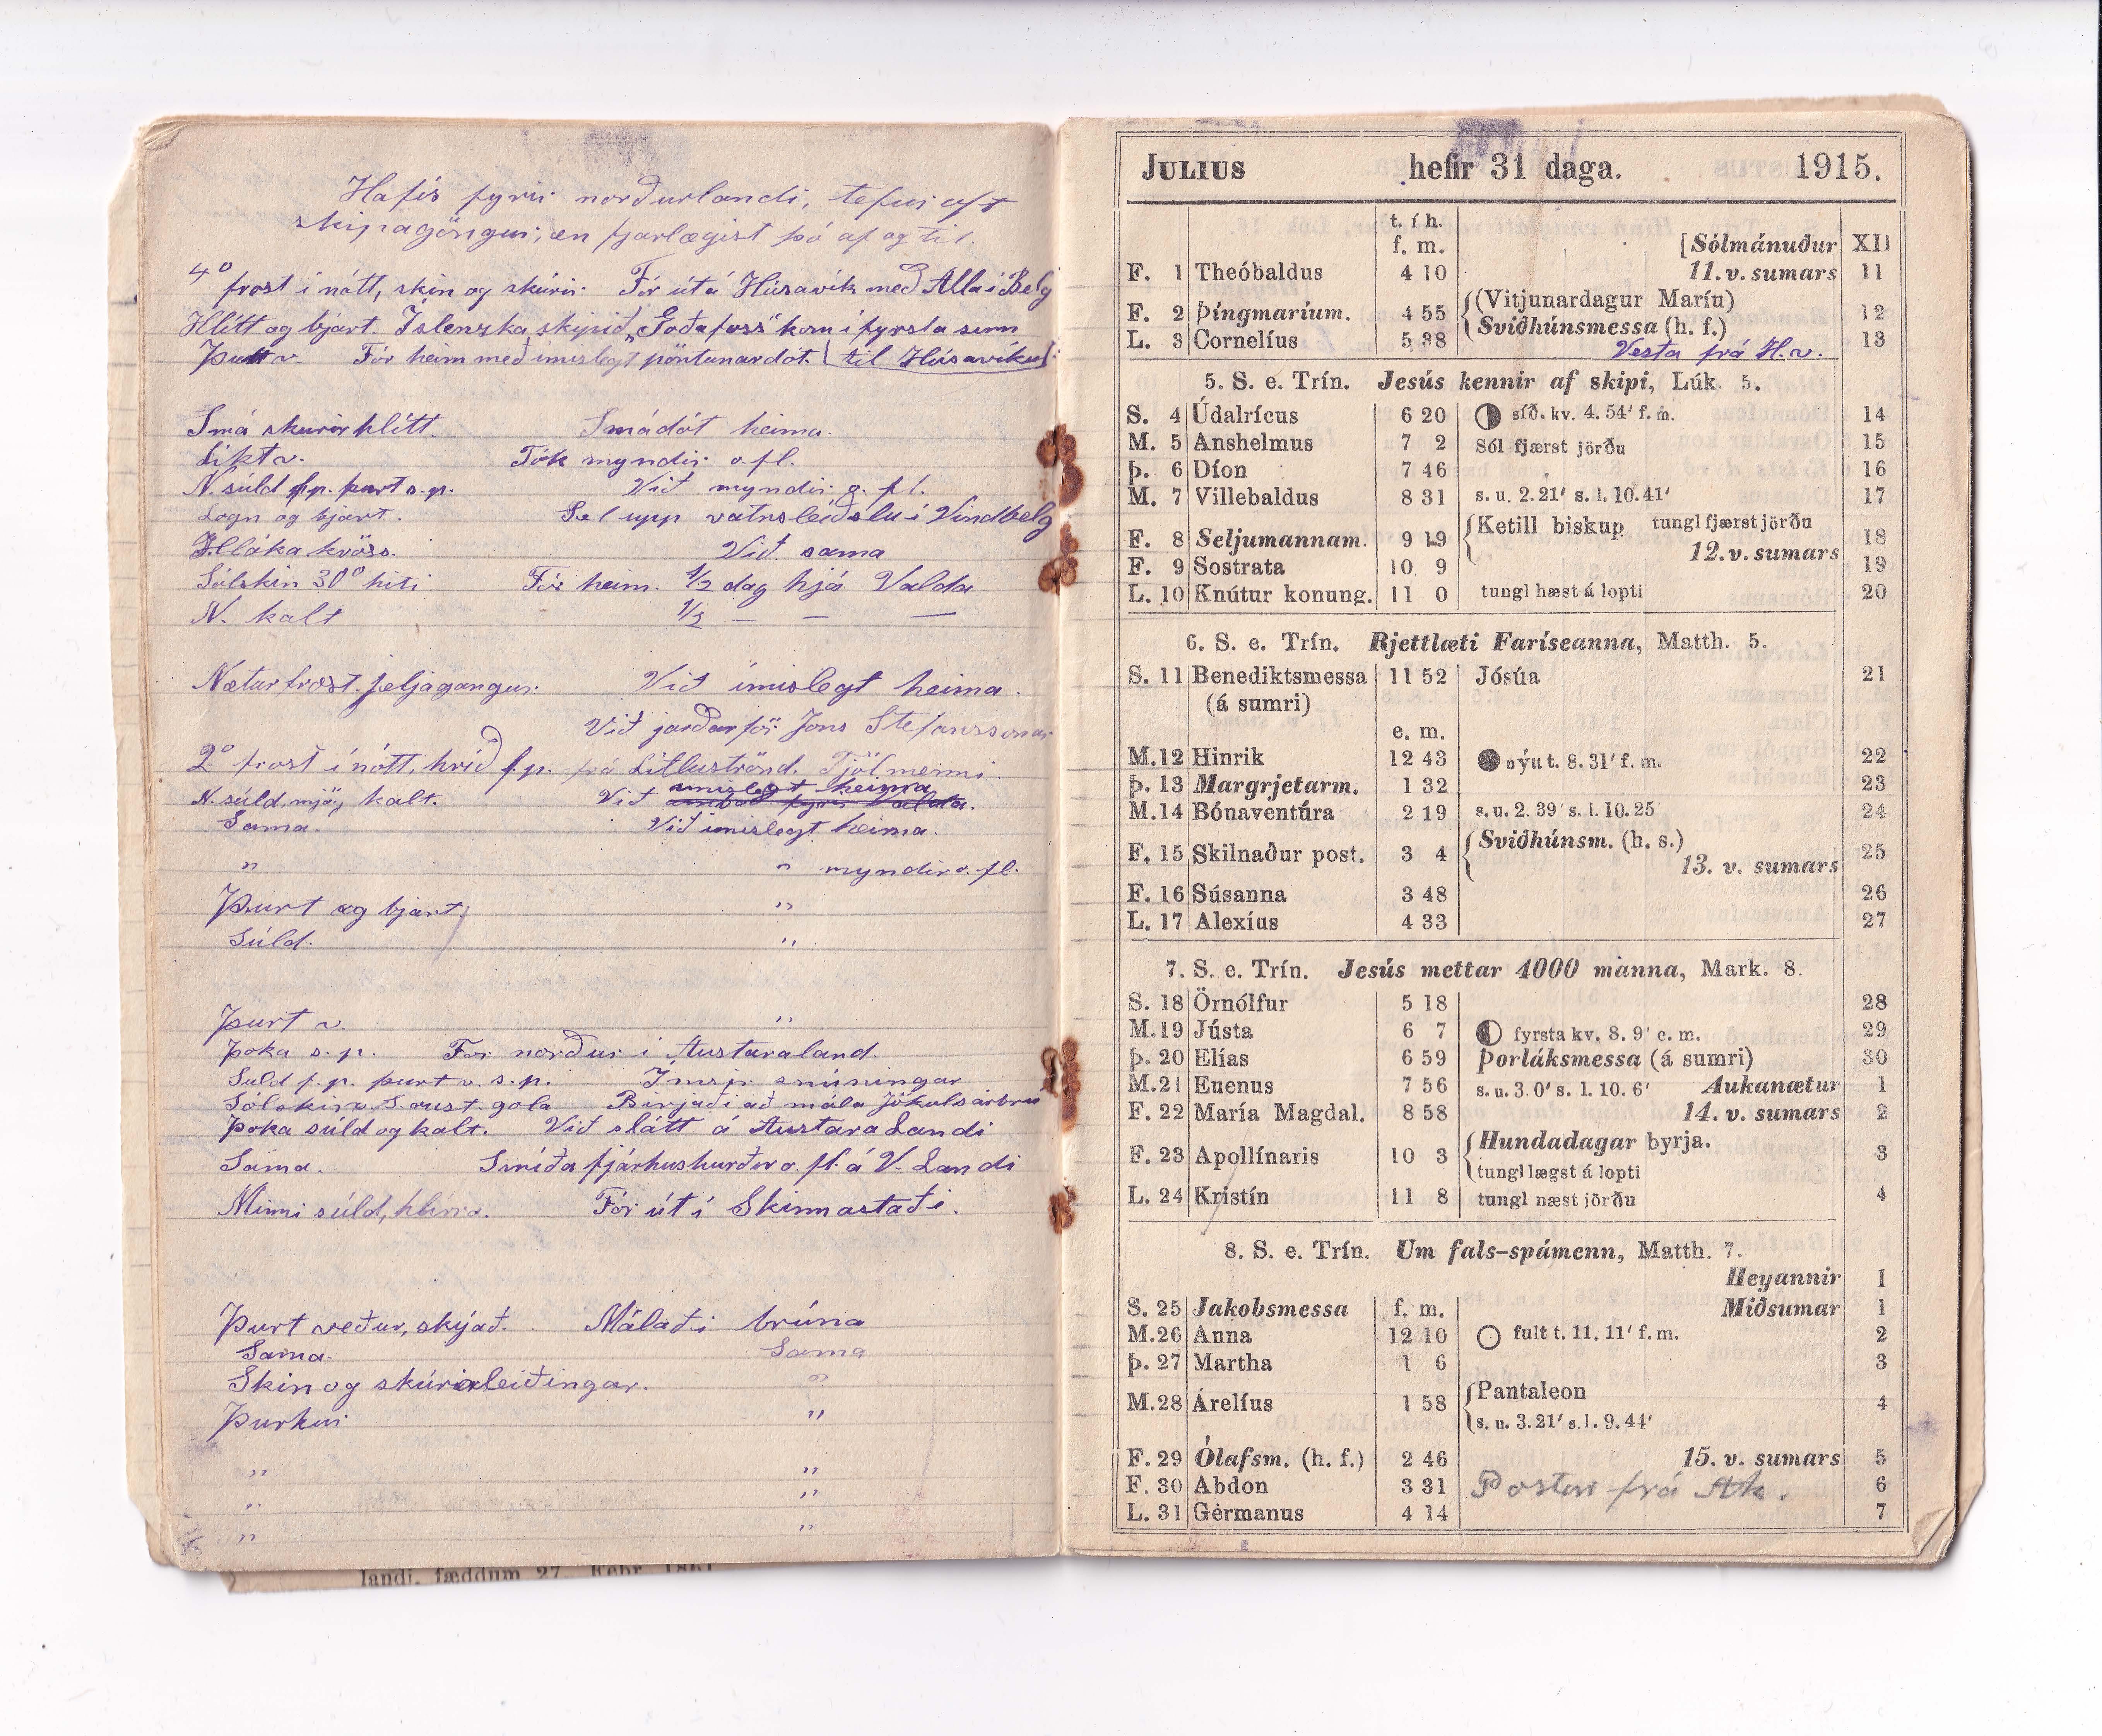 Hafís fyrir norðurlandi, tefur oft
skipagöngur, en fjarlægist þó af og til.
4° frost í nótt, skin og skúrir. Fór út á Húsavík með Alla í Belg
Hlítt og bjart. Íslenzka skipið „Goðafoss" kom í fyrsta sinn
Þurt v. Fór heim með ímislegt pöntunardót. (til Húsavíkur)
Smá skurir hlítt. Smádót heima.
Líkt v. Tók myndir o. fl.
N. súld f.p. þurt s.p. Við myndir o. fl.
Logn og bjart. Set upp vatnsleiðslu í Vindbelg
Hláka hvöss. Við sama
Sólskin 30° hiti Fór heim. 1/2 dag hjá Valda
N. kalt 1/2 — — —
Næturfrost. jeljagangur. Við ímislegt heima.
Við jarðarför Jóns Stefanssonar
2° frost í nótt, hríð f.p. frá Litluströnd. Fjölmenni.
N. súld, mjög kalt. Við ímislegt heima
Sama. Við ímislegt heima.
" " myndir o. fl.
Þurt og bjart. "
Súld. "
Þurt v. "
Þoka s.p. Fór norður í Austaraland.
Suld f.p. þurt v. s.p. Ímsir snúningar
Sólskin. S. aust. gola Birjaði að mála Jökulsárbrú
Þoka súld og kalt. Við slátt á Austara Landi
Sama. Smíða fjárhushurðir o. fl. á V. Landi
Minni súld, hlírra. Fór út í Skinnastaði.
Þurt veður, skýjað. Málaði brúna
Sama. Sama
Skin og skúraleiðingar. "
Þurkur "
" "
" "
" "
landi, fæddum 27. Febr. 1861
JULIUS hefir 31 daga. 1915.
t. í h.
f. m. [Sólmánuður XII
F. 1 Theóbaldus 4 10 11. v. sumars 11
F. 2 Þíngmaríum. 4 55 (Vitjunardagur Marín) 12
Sviðhúnsmessa (h. f.)
L. 3 Cornelíus 5 38 13
Vesta frá H.v.
5. S. e. Trín. Jesús kennir af skipi, Lúk. 5.
S. 4 Údalrícus 6 20 síð. kv. 4. 54' f. m. 14
M. 5 Anshelmus 7 2 Sól fjærst jörðu 15
Þ. 6 Díon 7 46 16
M. 7 Villebaldus 8 31 s. u. 2. 21' s. l. 10. 41' 17
F. 8 Seljumannam. 9 19 Ketill biskup tungl fjærst jörðu 18
12. v. sumars
F. 9 Sostrata 10 9 19
L. 10 Knútur konung. 11 0 tungl hæst á lopti 20
6. S. e. Trín. Rjettlæti Faríseanna, Matth. 5.
S. 11 Benediktsmessa 11 52 Jósúa 21
(á sumri)
e. m.
M. 12 Hinrik 12 43 nýtt t. 8. 31' f. m. 22
Þ. 13 Margrjetarm. 1 32 23
M. 14 Bónaventúra 2 19 s. u. 2. 39' s. l. 10. 25 24
F. 15 Skilnaður post. 3 4 Sviðhúnsm. (h. s.) 25
13. v. sumars
F. 16 Súsanna 3 48 26
L. 17 Alexíus 4 33 27
7. S. e. Trín. Jesús mettar 4000 manna, Mark. 8.
S. 18 Örnólfur 5 18 28
M. 19 Jústa 6 7 fyrsta kv. 8. 9' e. m. 29
Þ. 20 Elías 6 59 Þorláksmessa (á sumri) 30
M. 21 Euenus 7 56 s. u. 3. 0' s. l. 10. 6' Aukanætur 1
F. 22 María Magdal. 8 58 14. v. sumars 2
F. 23 Apollínaris 10 3 Hundadagar byrja. 3
tungl lægst á lopti
L. 24 Kristín 11 8 tungl næst jörðu 4
8. S. e. Trín. Um fals-spámenn, Matth. 7.
Heyannir I
S. 25 Jakobsmessa f. m. Miðsumar 1
M. 26 Anna 12 10 fult t. 11. 11' f. m. 2
Þ. 27 Martha 1 6 3
M. 28 Árelíus 1 58 Pantaleon 4
s. u. 3. 21' s. l. 9. 44'
F. 29 Ólafsm. (h. f.) 2 46 15. v. sumars 5
F. 30 Abdon 3 31 Postur frá Ak. 6
L. 31 Germanus 4 14 7